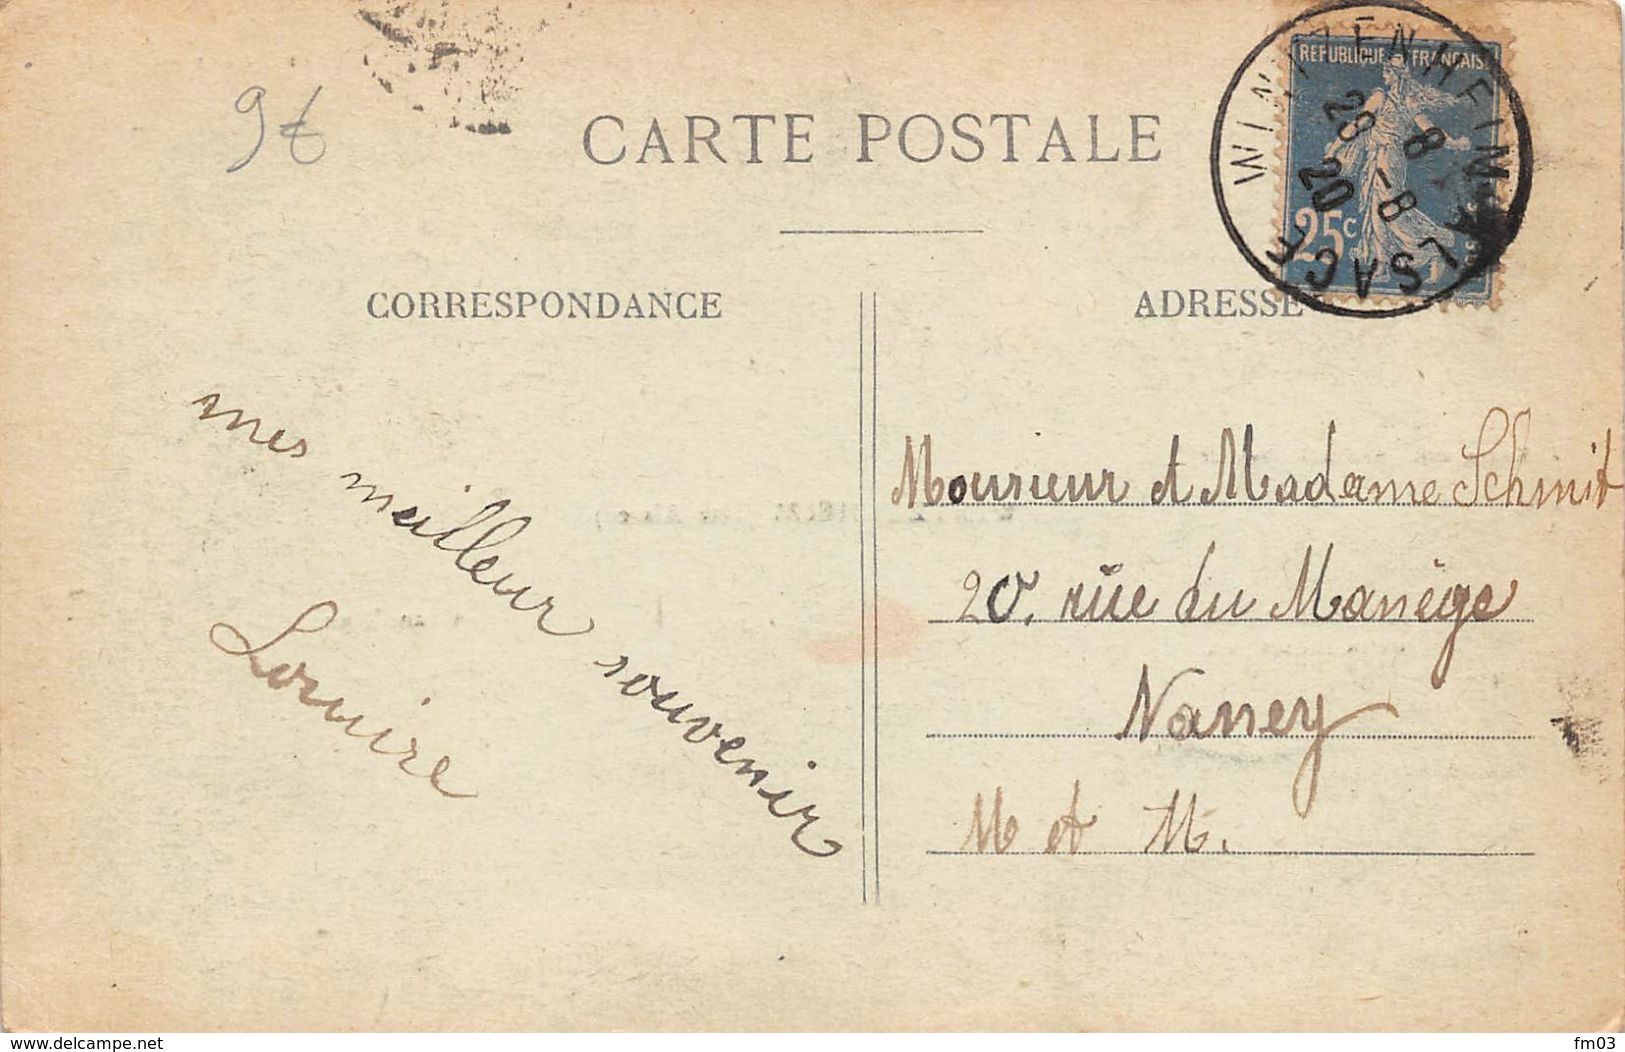 9t
CARTE POSTALE
REPUBLIQUE FRANCAISE
25c
WINTZENHEIM ALSACE
8 -8
20
CORRESPONDANCE
ADRESSE
mes meilleur souvenir
Louise
Monsieur et Madame Schmit
20, rue du Manège
Nancy
M et M.
www.delcampe.net
fm03